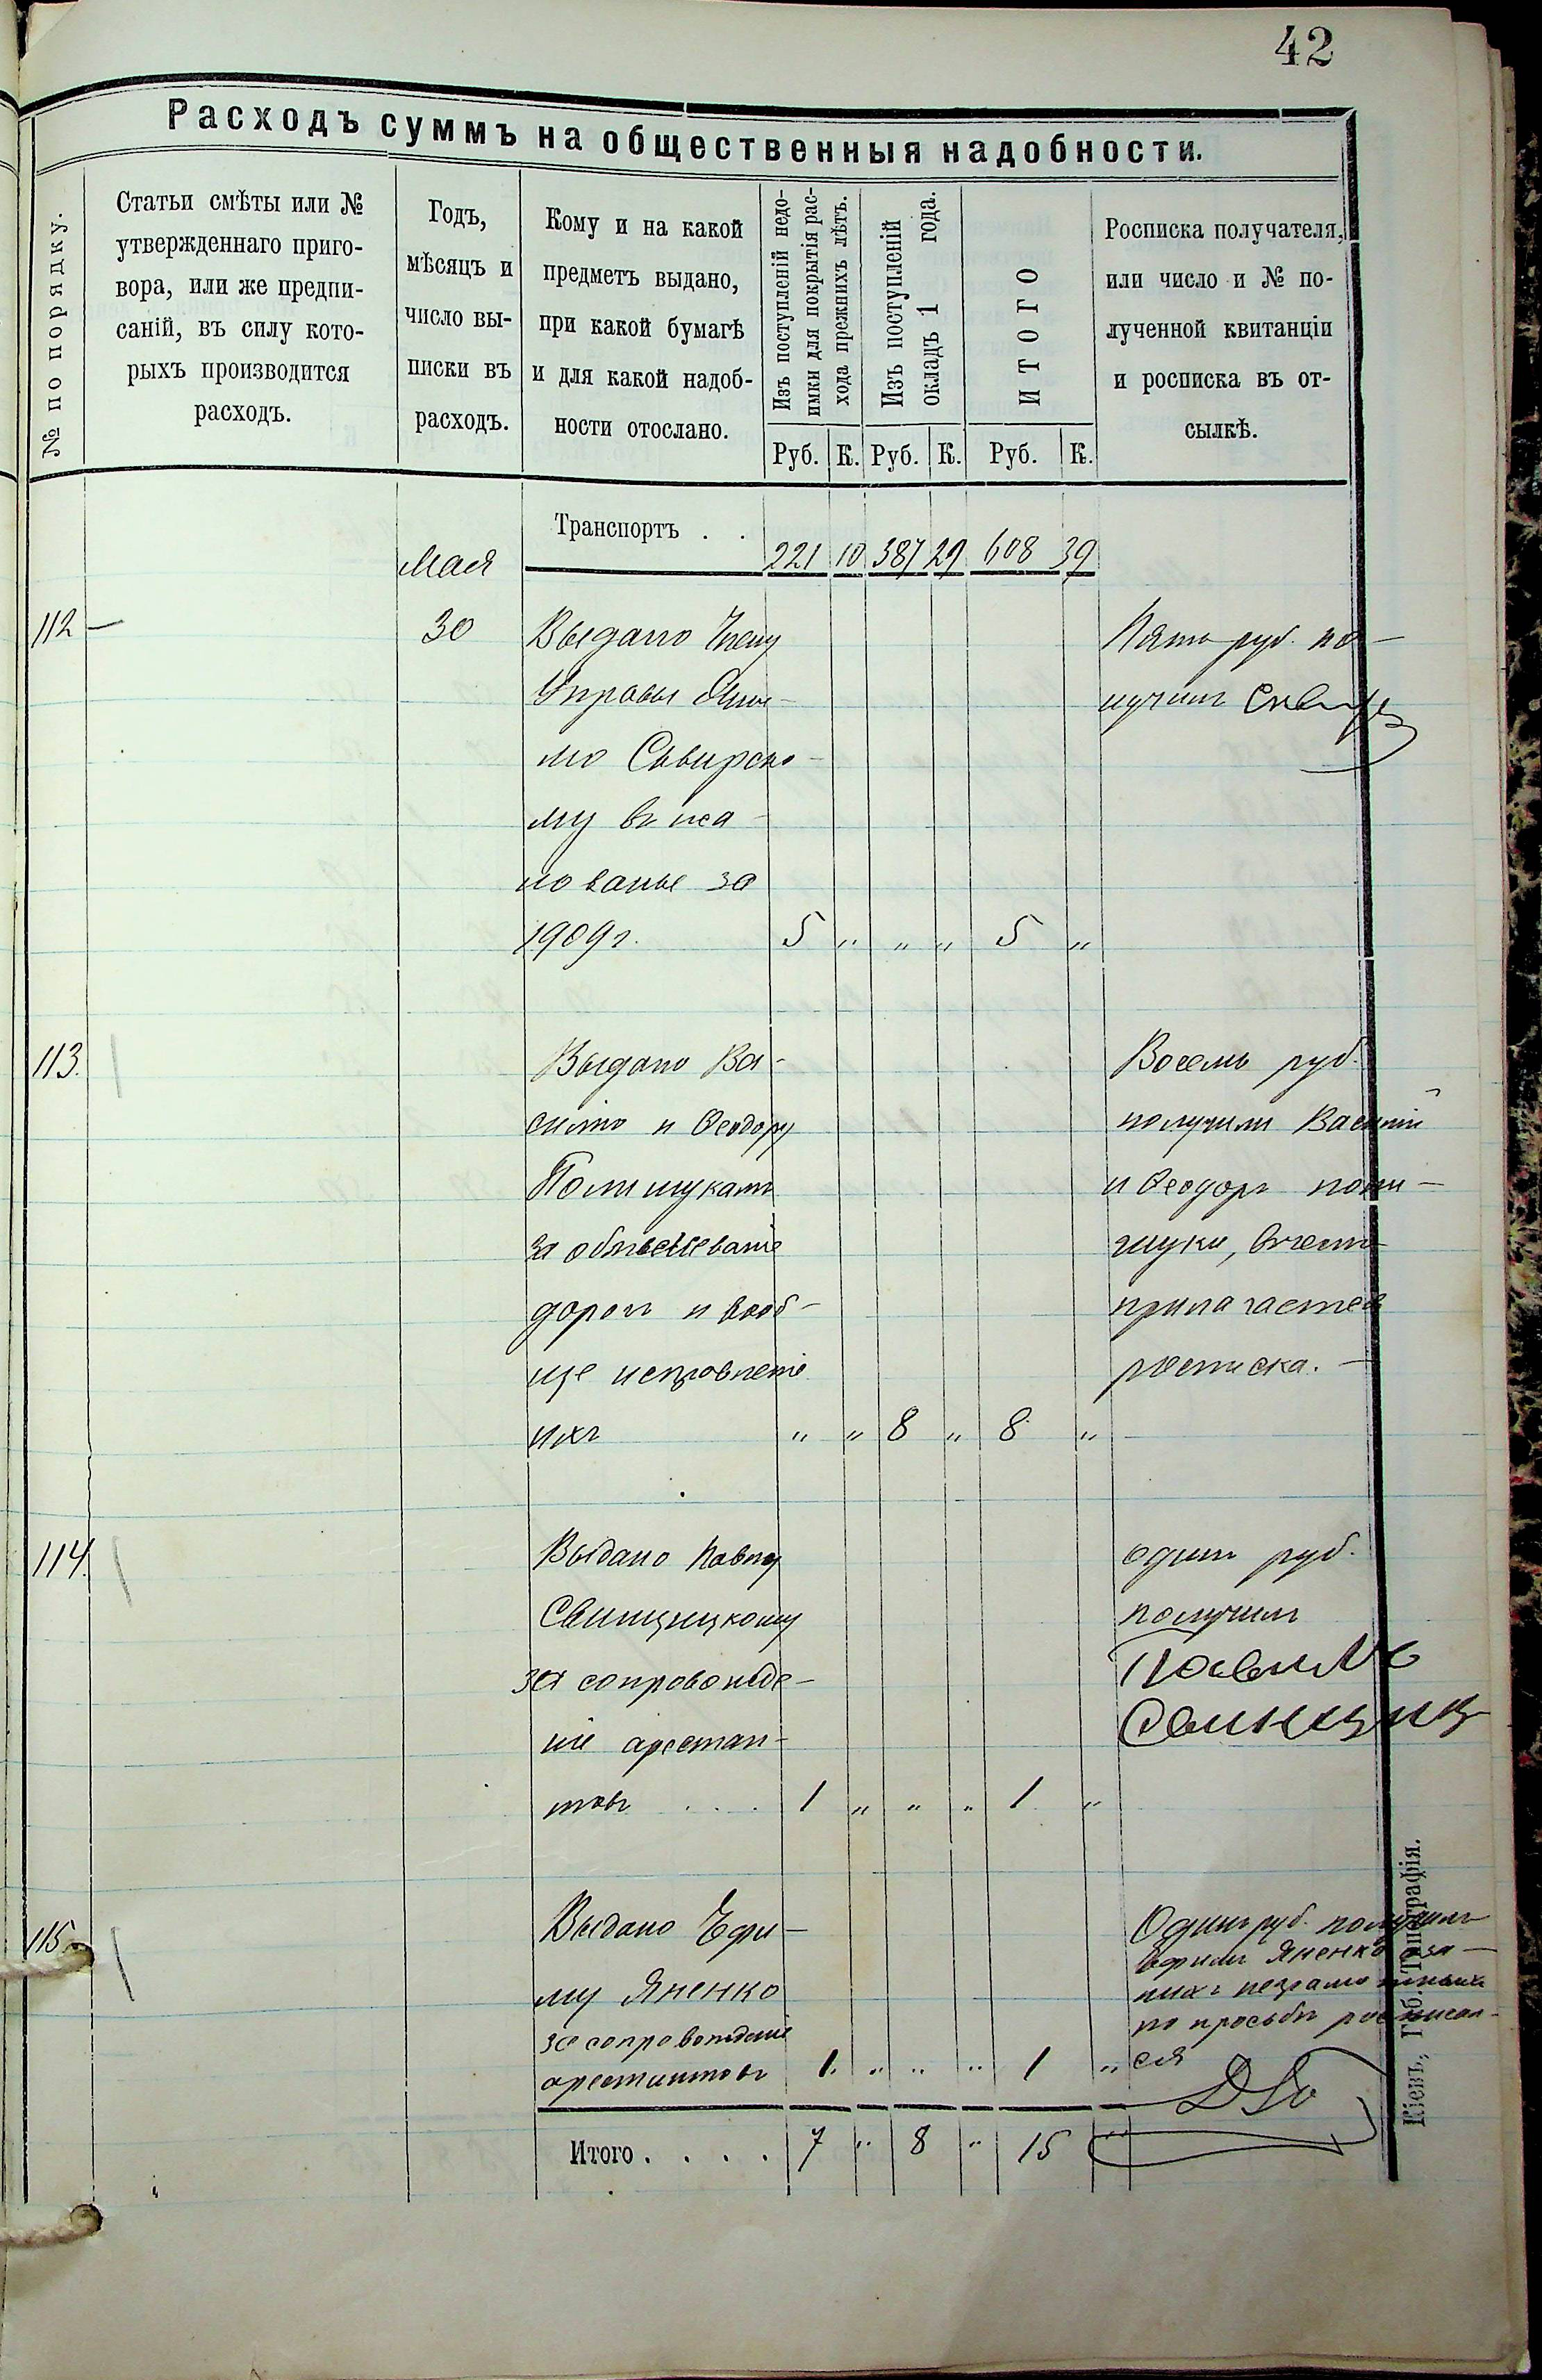 42
Расходъ суммъ на общественныя надобности.
№ по порядку.
Статьи смѣты или №
утвержденнаго приго-
вора, или же предпи-
саній, въ силу кото-
рыхъ производится
расходъ.
Годъ,
мѣсяцъ и
число вы-
писки въ
расходъ.
Кому и на какой
предметъ выдано,
при какой бумагѣ
и для какой надоб-
ности отослано.
Изъ поступленій недо-
имки для покрытія рас-
хода прежнихъ лѣтъ.
Изъ поступленій
окладъ 1 года.
ИТОГО
Росписка получателя,
или число и № по-
лученной квитанціи
и росписка въ от-
сылкѣ.
Руб. К. Руб. К. Руб. К.
Транспортъ . .
221 10 387 29 608 39
Мая
112 — 30 Выдано Члену
Управы
му въ жа-
лованье за
1909 г. 5 " " " 5 "
Пять руб. по-
лучилъ
113. Выдано Ва-
силію и Ѳеодору
Полищукамъ
за обвѣшеваніе
дорогъ и вооб-
ще исправленіе
ихъ " " 8 " 8 "
Восемь руб.
получили Василій
и Ѳеодоръ Поли-
щуки, в чемъ
прилагается
росписка. —
114. Выдано Павлу
Свинцицкому
за сопровожде-
ніе арестан-
товъ . . . 1 " " " 1 "
Одинъ руб.
получилъ
Павилъ
Свинциц
115 Выдано Ефи-
му Яненко
за сопровожденіе
арестантовъ 1. " " " 1 "
Одинъ руб. получилъ
Ефимъ Яненко а за-
нихъ неграмотныхъ
по просьбѣ росписал-
ся
Итого . . . . 7 " 8 " 15 "
Кіевъ, Губ. Типографія.